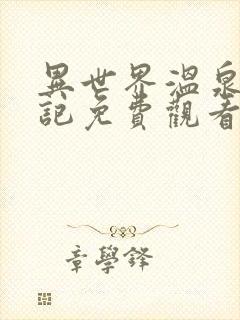 異世界溫泉
記免費觀看
章學鋒